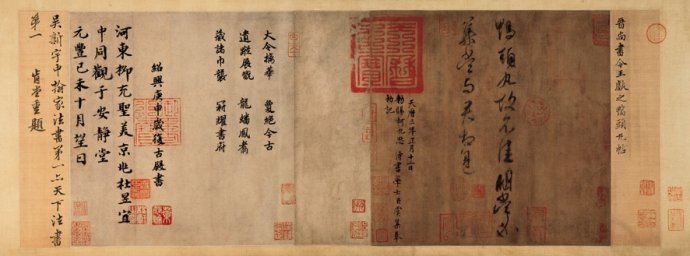 晉尚書令王獻之鴨頭丸帖
鴨頭丸故不佳明當必
集當與君相見
天曆三年正月十二日
敕賜柯九思 侍書學士臣虞集奉
敕記
大令摛華 敻絕今古
遺蹤展翫 龍蟠鳳翥
藏諸巾襲 冠耀書府
紹興庚申歲復古殿書
河東柳充聖美京兆杜昱宜
中同觀于安靜堂
元豐己未十月望日
吳新宇中翰家法書第一亦天下法書
第一 肯堂重題